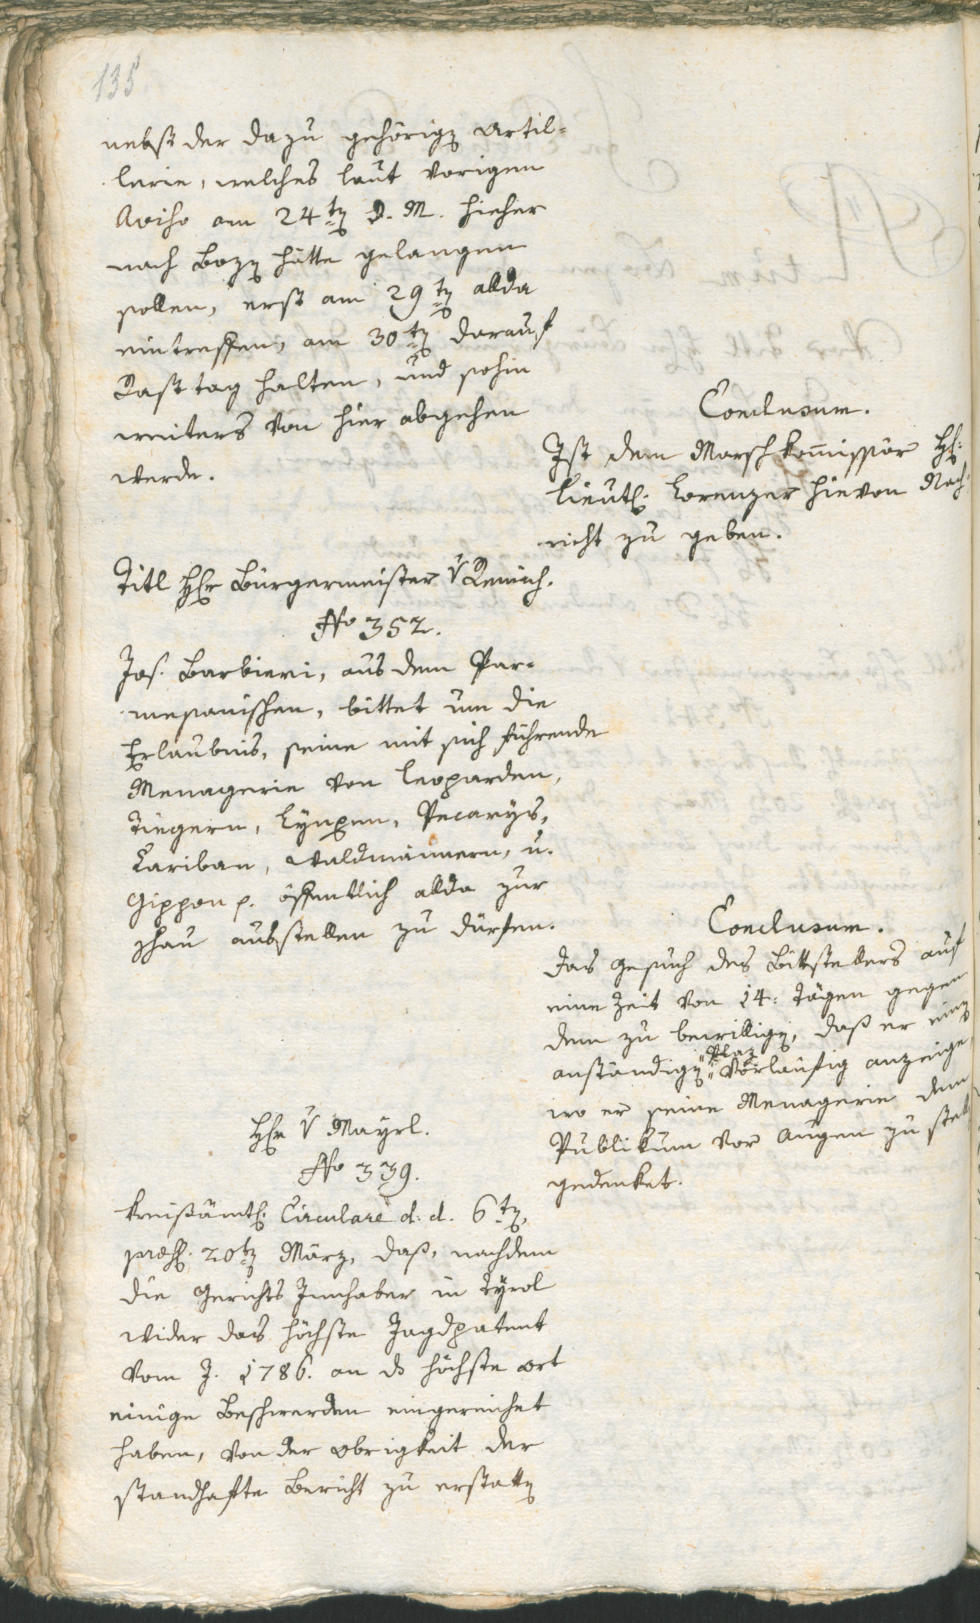 135
nebst der dazu gehörigen Artil=
lerie, welches laut vorigen
Aviso am 24ten d. M. hieher
nach Bozen hätte gelangen
sollen, erst am 29ten allda
eintreffen, am 30ten darauf
Rasttag halten, und sohin
weiters von hier abgehen
werde.
Conclusum.
Ist dem Marschkom̅issär H:
Lieut: Lorenzer hievon Nach=
richt zu geben.
Titl Hr Bürgermeister v
No 352.
Jos. Barbieri, aus dem Par=
mesanischen, bittet um die
Erlaubnis, seine mit sich führende
Menagerie von Leoparden,
Tiegern, Lynxen, Pecarys,
Cariban, Waldmännern, u.
Gippon p. öffentlich allda zur
schau ausstellen zu dürfen.
Conclusum.
Das Gesuch des Bittstellers auf
eine Zeit von 14: Tägen gegen
dem zu bewilligen, daß er einen
anständigen Plaz vorläufig anzeige,
wo er seine Menagerie dem
Publikum vor Augen zu stell
gedenket.
Hr v Mayrl.
No 339.
Kreisämtl: Circulare d. d. 6ten,
præs: 20ten März, daß, nachdem
die Gerichts Innhaber in Tyrol
wider das höchste Jagdpatent
vom J. 1786. an ds höchste Ort
einige Beschwerden eingereichet
haben, von der Obrigkeit der
standhafte Bericht zu erstatten